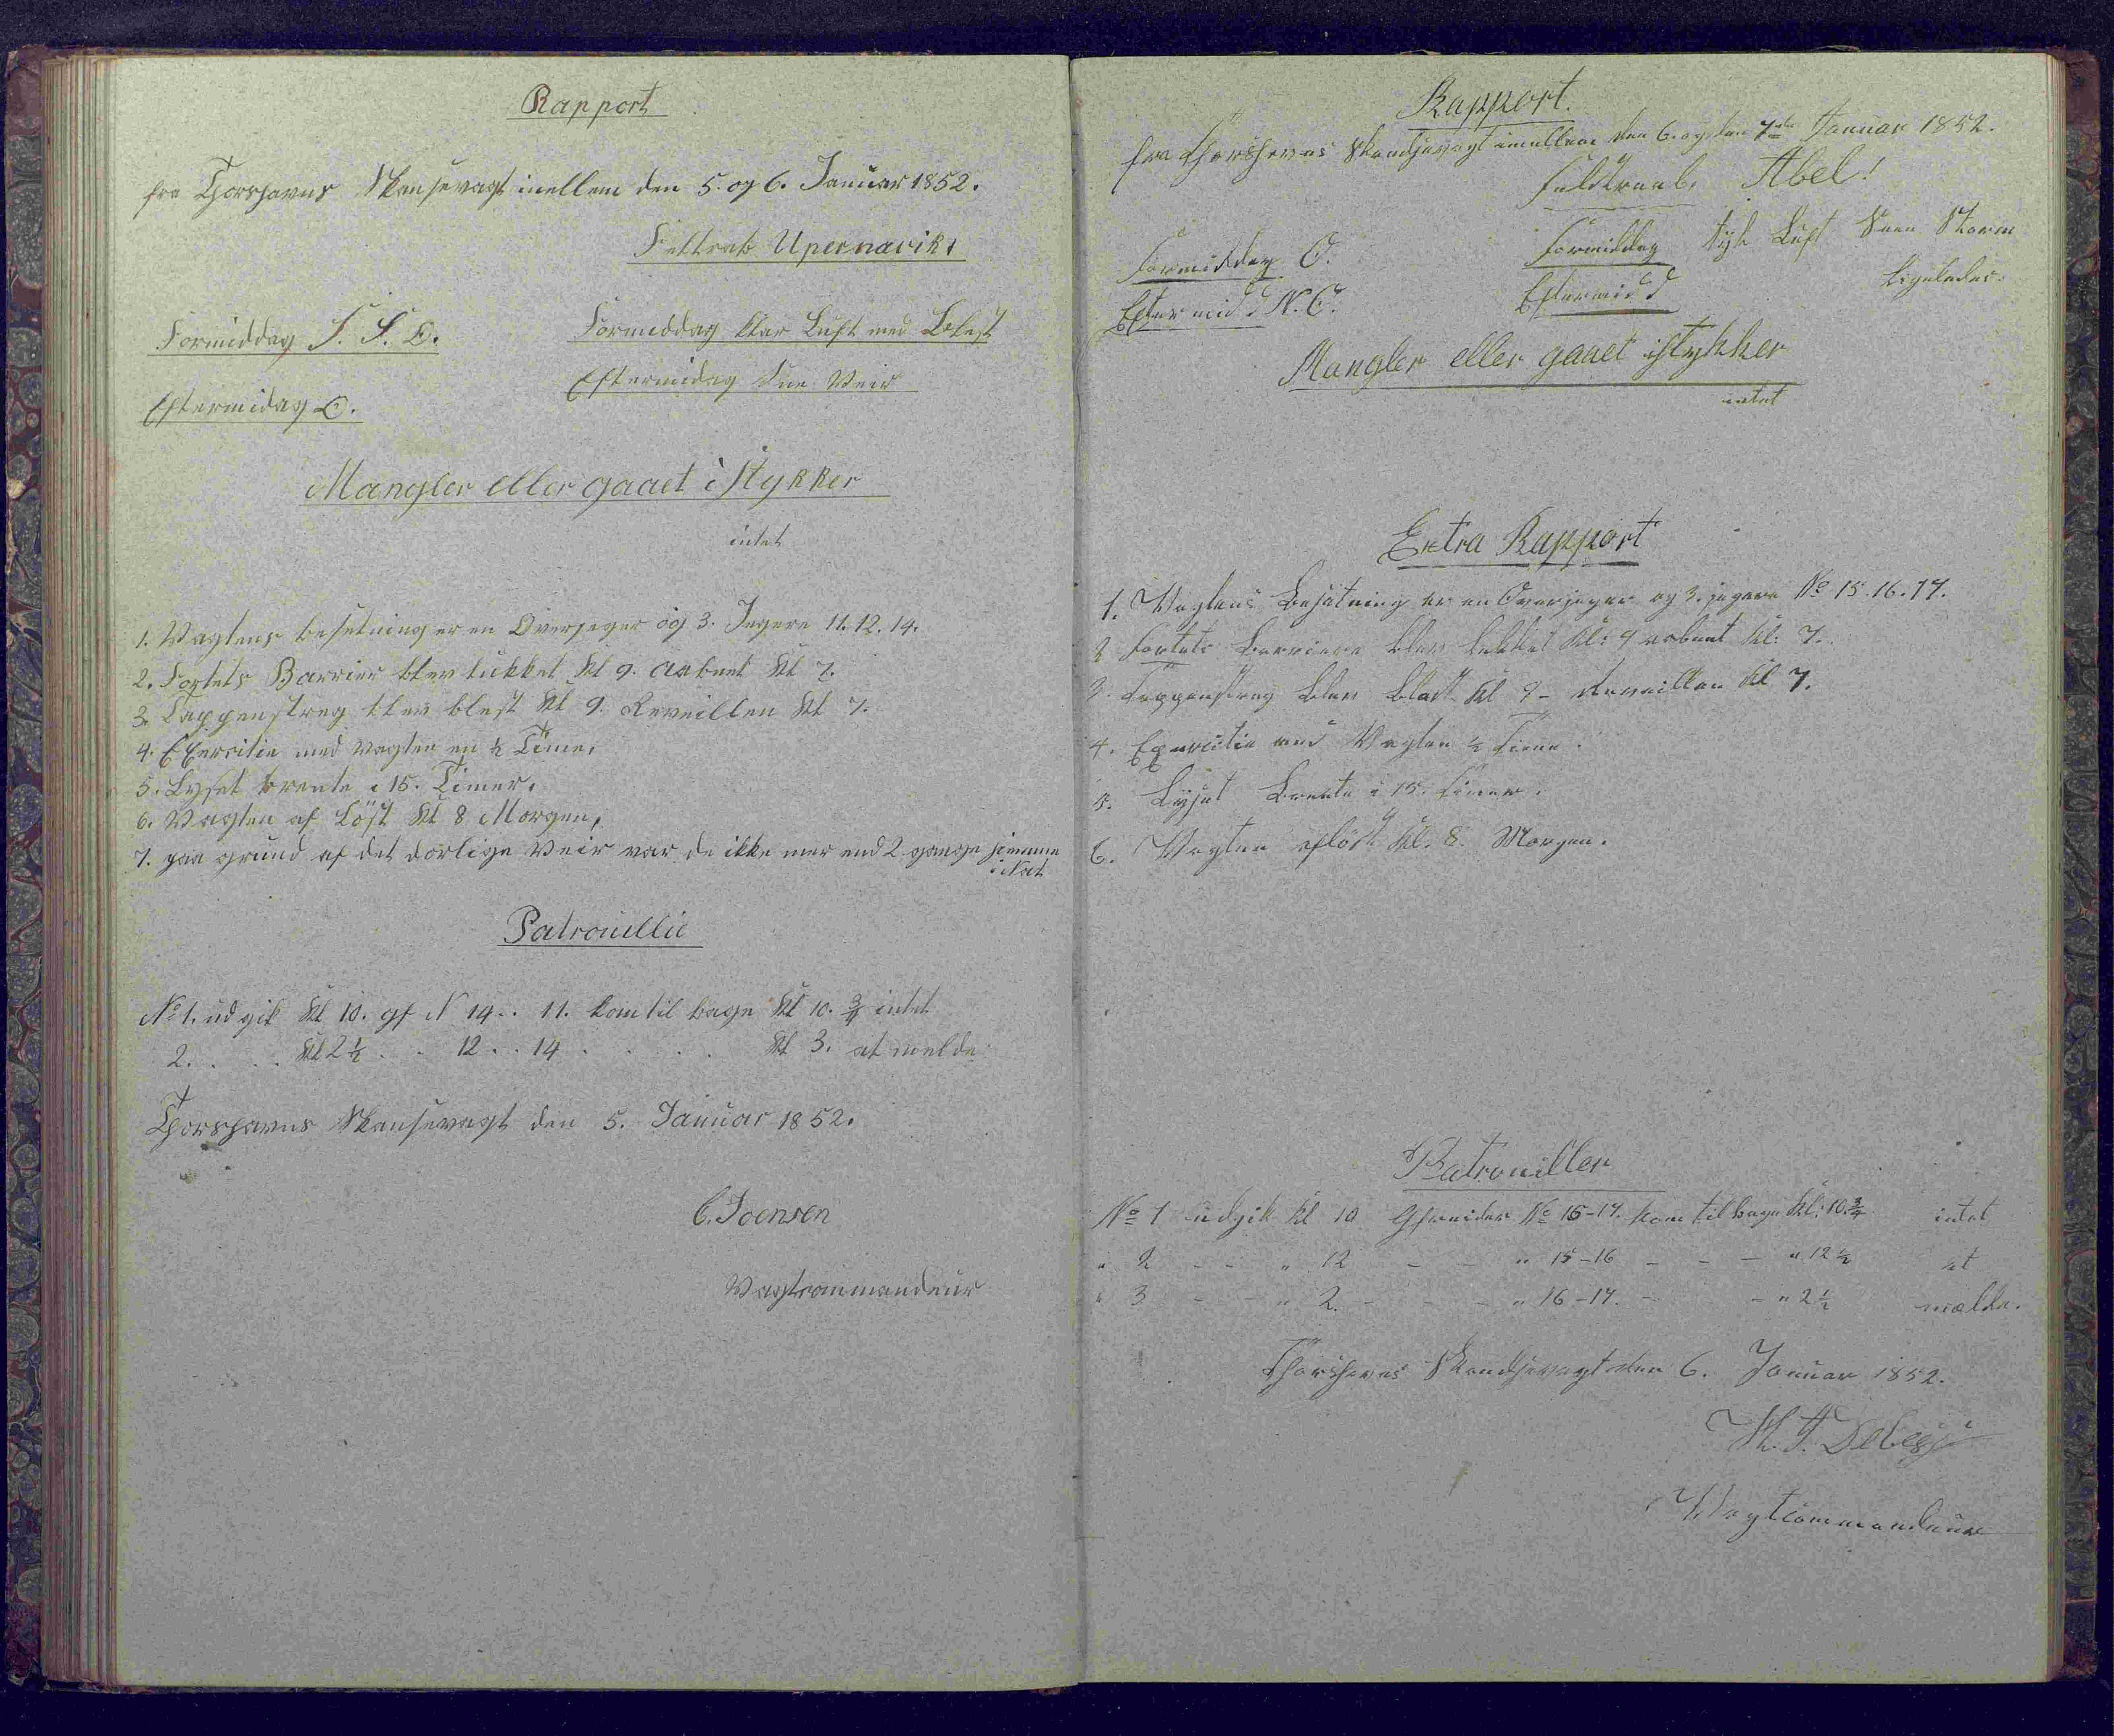 Rapport
fra Thorshavns Skansevagt mellem den 5. og 6. Januar 1852.
Feltraab Upernavik,
Formiddag S. S. O.
Formiddag klar Luft med Blest
Eftermidag O.
Eftermidag Sne Veir
Mangler eller gaaet i stykker
intet
1. Vagtens besetning er en Overjeger og 3. Jegere 11. 12. 14.
2. Fortets Barrier blev lukket Kl 9. aabnet Kl 7.
3. Tappenstreg blev blest Kl 9. Reveillen Kl 7.
4. Exersitie med vagten en ½ Time,
5. Lyset brente i 15. Timer,
6. Vagten af Löst Kl 8 Morgen,
7. paa grund af det dorlige Veir var de ikke mer end 2 gange
i Nat
Patrouillie
No 1. ud gik Kl 10. gf N 14 . . 11. kom til bage Kl 10. ¾ intet
2. . . . Kl 2½ . . 12 . . 14 . . . . Kl 3. at melde
Thorshavns Skansevagt den 5. Januar 1852.
C. Joensen
Vagtcommandeur
Rapport.
fra Thorshavns Skandsevagt imellem den 6. og den 7de Januar 1852.
Feldtraab. Abel!
Formiddag O.
Formiddag tyk Luft Snee Storm
Eftermidd N. O.
Eftermidd Ligeledes.
Mangler eller gaaet istykker
intet
Extra Rapport
1. Vagtens Besætning er en Overjæger og 3. jægere No 15. 16. 17.
2 Fortets Barriere blev lukket Kl: 9 aabnet Kl. 7.
3. Tappenstreg blev blæst Kl 9 - Reveillen Kl 7.
4. Exersitie med Vagten ½ Time.
5. Lyset brente i 15. Timer.
6. Vagten aflöst Kl. 8. Morgen.
Patrouiller
No 1 udgik Kl 10 Gefreider No 15-17. kom tilbage Kl: 10.¾ intet
" 2 - - " 12 - - " 15-16 - - - " 12½ at
" 3 - - " 2. - - - " 16-17. - - " 2½ mælde.
Thorshavns Skandsevagt den 6. Januar 1852.
Debes
Vagtcommandeur